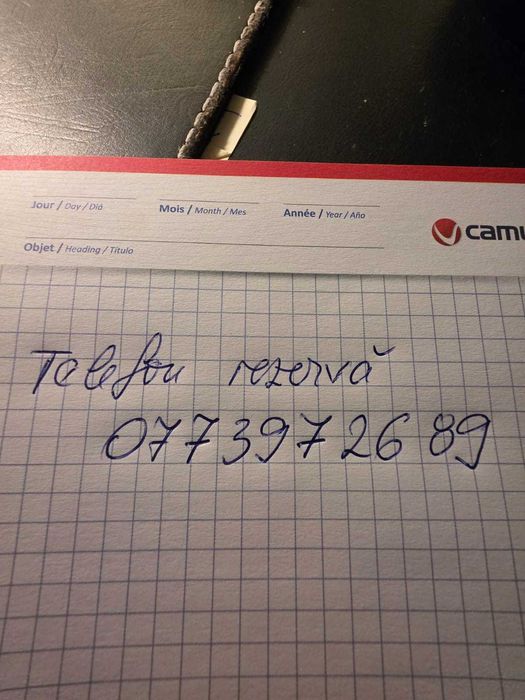 Jour / Day / Diá
Mois / Month / Mes
Année / Year / Año
camu
Objet / Heading / Título
Telefon rezervă
0773972689